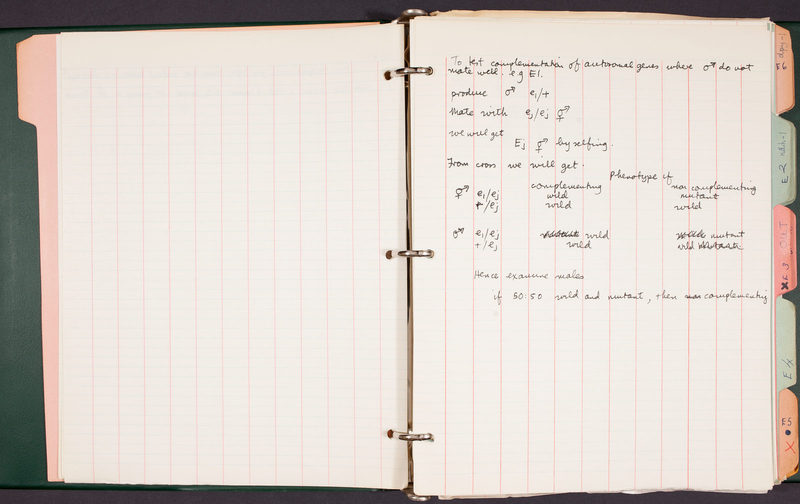 To test complementation of autosomal genes where ♂ do not
mate well. e.g E1.
produce ♂ ei/+
mate with ej/ej ⚥
we will get
Ej ⚥ by selfing.
From cross we will get.
Phenotype if
complementing non complementing
⚥ ei/ej wild mutant
+/ej wild wild
♂ ei/ej wild mutant
+/ej wild wild
Hence examine males
if 50:50 wild and mutant, then non complementing
dpy-1
E6
E2
E3
E5
X